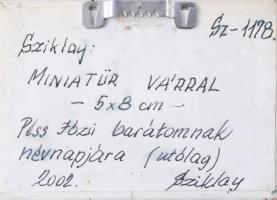 Sz-1178.
Sziklay:
MINIATŰR VÁRRAL
- 5x8 cm -
Piss Józsi barátomnak
névnapjára (utólag)
2002. Sziklay